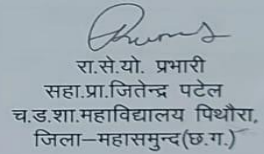 रा.से.यो. प्रभारी
सहा.प्रा.जितेन्द्र पटेल
च.ड.शा.महाविद्यालय पिथौरा,
जिला–महासमुन्द(छ.ग.)